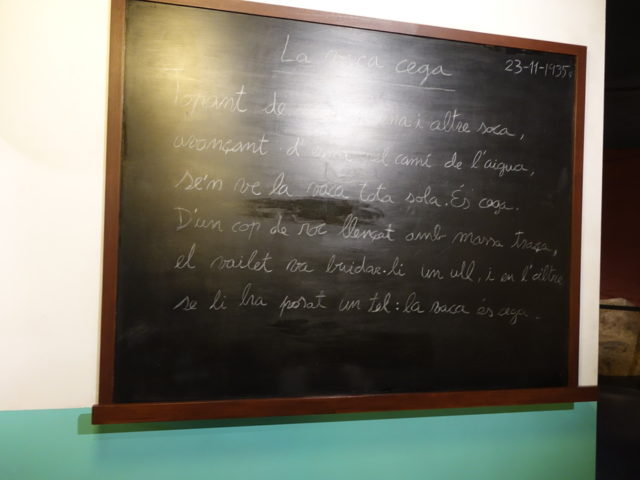 La vaca cega
23-11-1935.
Topant de i altre soca,
avançant d'esma pel camí de l'aigua,
se'n ve la vaca tota sola. És cega.
D'un cop de roc llençat amb massa traça,
el vailet va buidar-li un ull, i en l'altre
se li ha posat un tel: la vaca és cega.